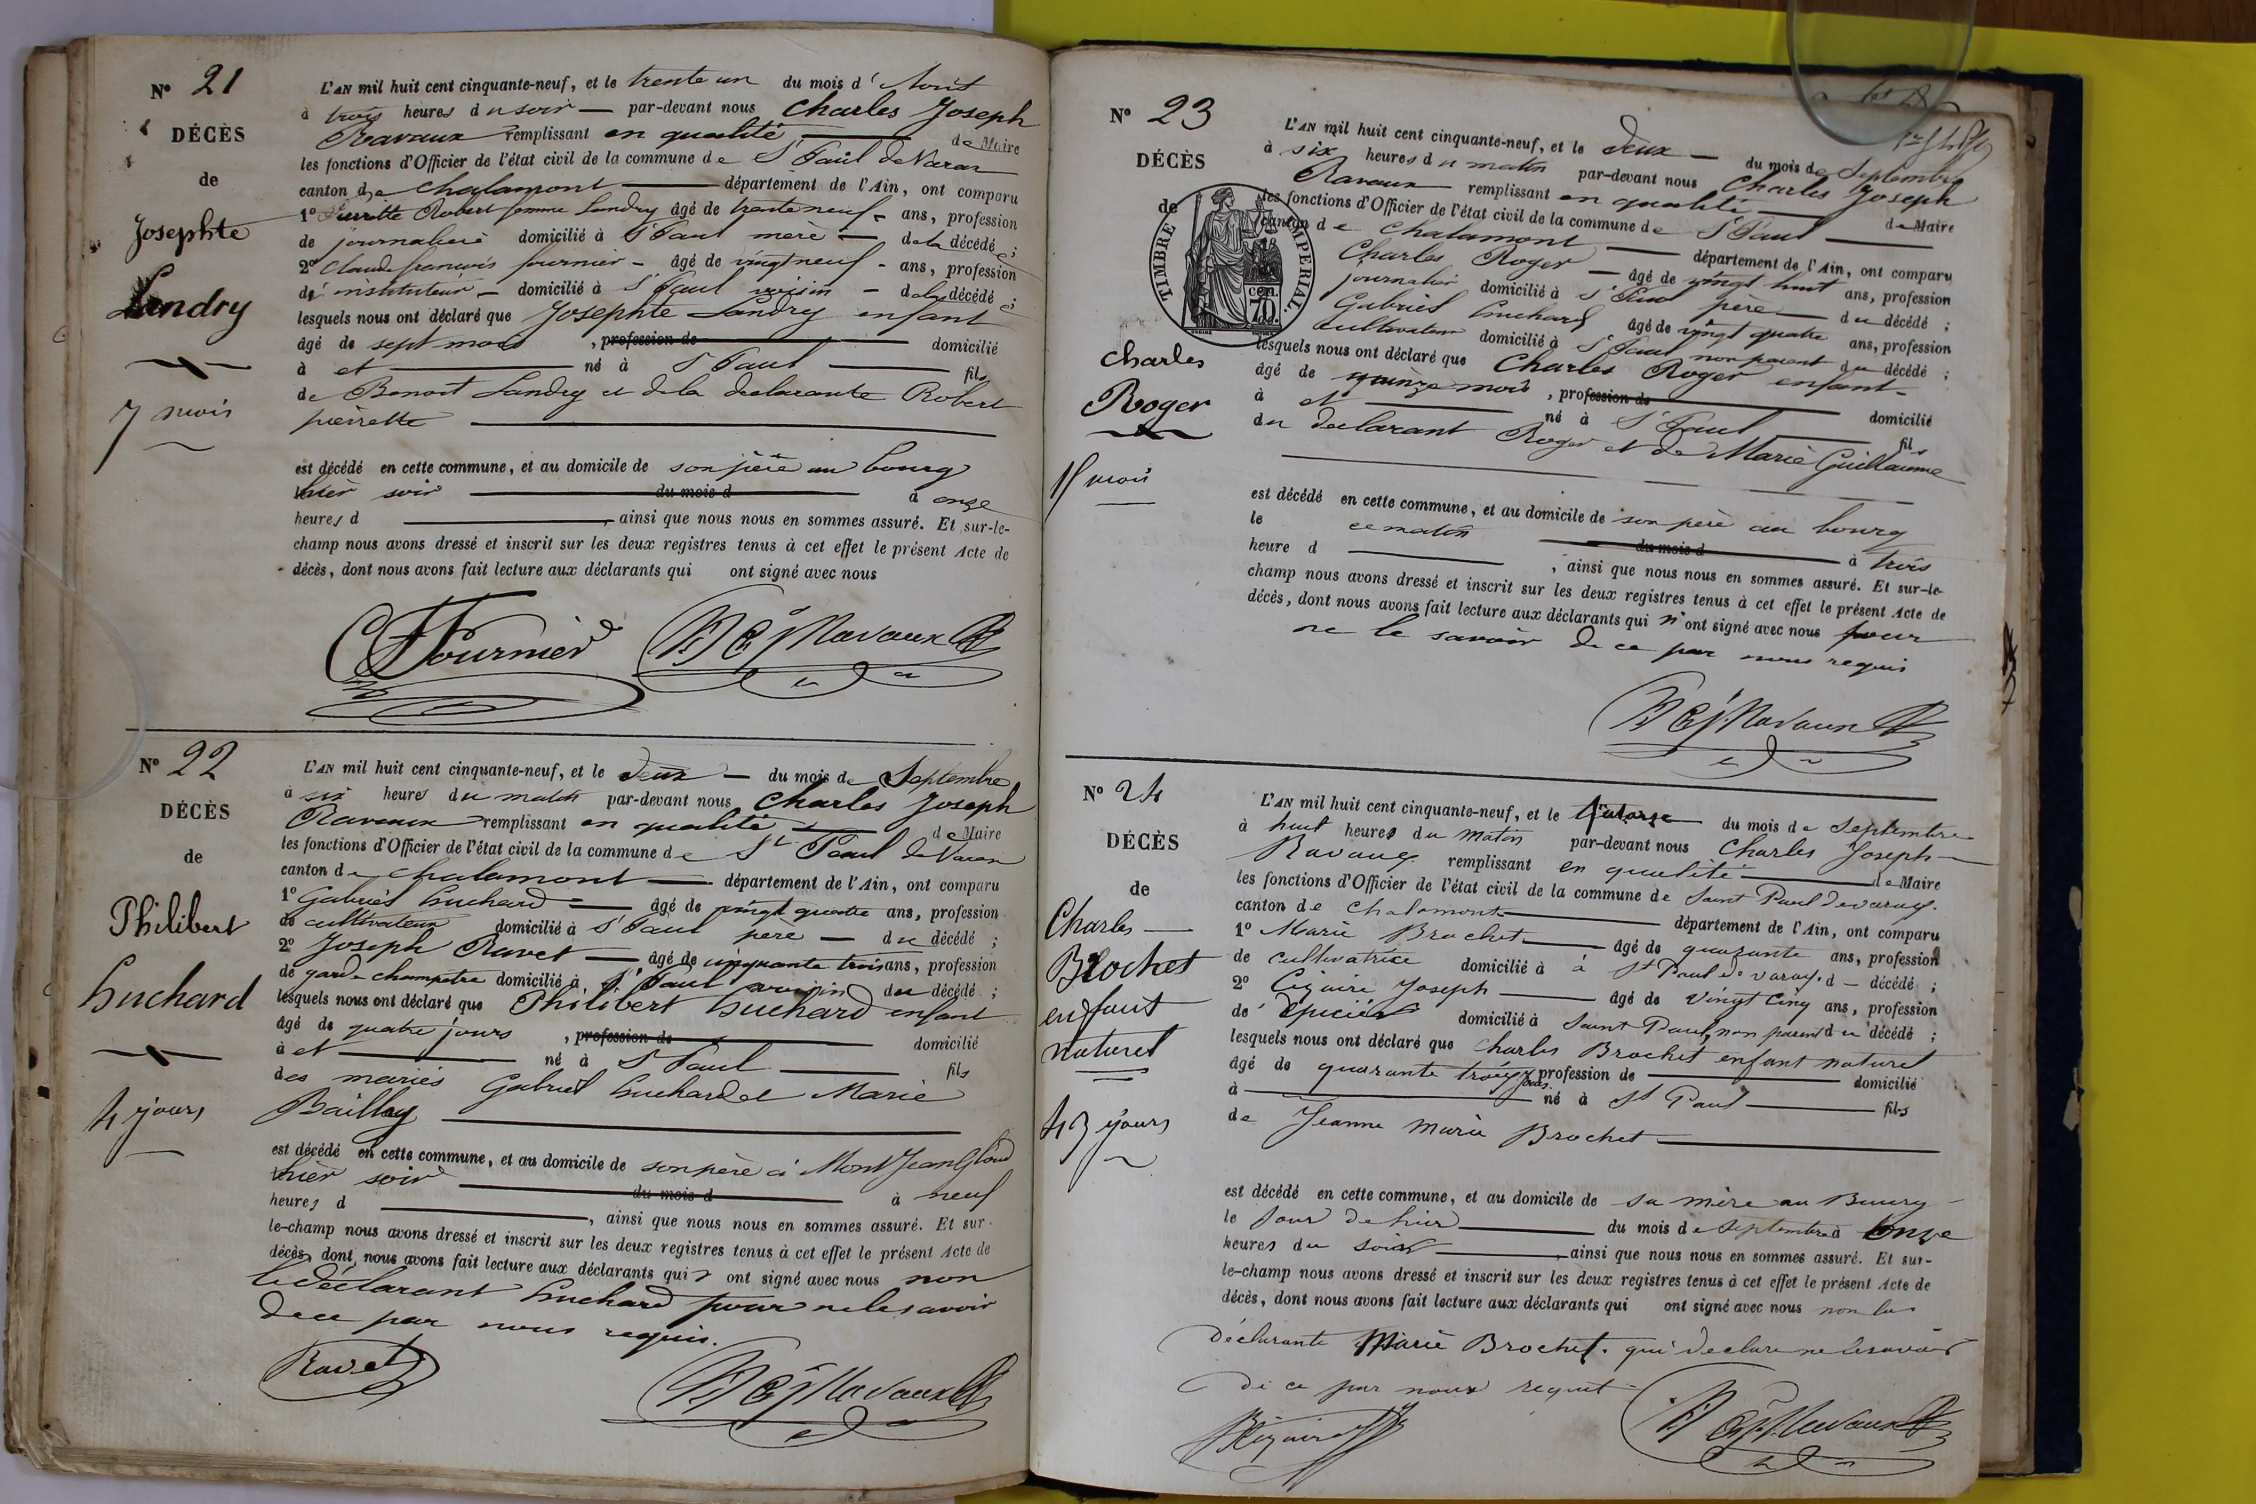 N° 21
DÉCÈS
de
Josephte
Landry
7 mois
L'AN mil huit cent cinquante-neuf, et le trente un du mois d'Août
à trois heures du soir — par-devant nous Charles Joseph
Ravaux remplissant en qualité de Maire
les fonctions d'Officier de l'état civil de la commune de St Paul de Varax
canton de Chalamont département de l'Ain, ont comparu
1° Pierrette Robert femme Landry âgé de trente neuf ans, profession
de journalière domicilié à St Paul mère — de la décédée ;
2° Claude françois fournier — âgé de vingt neuf ans, profession
d'instituteur — domicilié à St Paul voisin — de la décédée ;
lesquels nous ont déclaré que Josephte Landry enfant
âgé de sept mois , profession de domicilié
à et né à St Paul fils
de Benoit Landry et de la declarante Robert
pierrette
est décédé en cette commune, et au domicile de son père au bourg
hier soir du mois d à onze
heures d , ainsi que nous nous en sommes assuré. Et sur-le-
champ nous avons dressé et inscrit sur les deux registres tenus à cet effet le présent Acte de
décès, dont nous avons fait lecture aux déclarants qui ont signé avec nous
Fournier Ravaux
N° 22
DÉCÈS
de
Philibert
Luchard
4 jours
L'AN mil huit cent cinquante-neuf, et le Deux — du mois de Septembre
à six heures du matin par-devant nous Charles Joseph
Ravaux remplissant en qualité de Maire
les fonctions d'Officier de l'état civil de la commune de St Paul de Varax
canton de Chalamont département de l'Ain, ont comparu
1° Gabriel Luchard âgé de vingt quatre ans, profession
de cultivateur domicilié à St Paul père — du décédé ;
2° Joseph Ravet — âgé de cinquante trois ans, profession
de garde champetre domicilié à St Paul voisin du décédé ;
lesquels nous ont déclaré que Philibert Luchard enfant
âgé de quatre jours , profession de domicilié
à et né à St Paul fils
des mariés Gabriel Luchard et Marie
Bailly
est décédé en cette commune, et au domicile de son père à Mont Jean
hier soir du mois d à neuf
heures d , ainsi que nous nous en sommes assuré. Et sur-
le-champ nous avons dressé et inscrit sur les deux registres tenus à cet effet le présent Acte de
décès, dont nous avons fait lecture aux déclarants qui ont signé avec nous non
le déclarant Luchard pour ne le savoir
de ce par nous requis.
Ravet Ravaux
N° 23
DÉCÈS
de
TIMBRE IMPERIAL.
70 cen.
Charles
Roger
15 mois
L'AN mil huit cent cinquante-neuf, et le Deux — du mois de Septembre
à six heures du matin par-devant nous Charles Joseph
Ravaux remplissant en qualité de Maire
les fonctions d'Officier de l'état civil de la commune de St Paul
canton de Chalamont département de l'Ain, ont comparu
Charles Roger — âgé de vingt huit ans, profession
journalier domicilié à St Paul père — du décédé ;
Gabriel Luchard âgé de vingt quatre ans, profession
cultivateur domicilié à St Paul non parent du décédé ;
lesquels nous ont déclaré que Charles Roger enfant
âgé de quinze mois , profession de domicilié
à et né à St Paul fils
du declarant Roger et de Marie Guillaume
est décédé en cette commune, et au domicile de son père au bourg
le ce matin du mois d à trois
heure d , ainsi que nous nous en sommes assuré. Et sur-le-
champ nous avons dressé et inscrit sur les deux registres tenus à cet effet le présent Acte de
décès, dont nous avons fait lecture aux déclarants qui n'ont signé avec nous pour
ne le savoir de ce par nous requis
Ravaux
N° 24
DÉCÈS
de
Charles
Brochet
enfant
naturel
43 jours
L'AN mil huit cent cinquante-neuf, et le quatorze du mois de Septembre
à huit heures du matin par-devant nous Charles Joseph
Ravaux remplissant en qualité de Maire
les fonctions d'Officier de l'état civil de la commune de Saint Paul de varax.
canton de Chalamont département de l'Ain, ont comparu
1° Marie Brochet âgé de quarante ans, profession
de cultivatrice domicilié à à St Paul de varax. d — décédé ;
2° Joseph âgé de vingt cinq ans, profession
d'épicier domicilié à Saint Paul, non parent du décédé ;
lesquels nous ont déclaré que Charles Brochet enfant naturel
âgé de quarante trois jours profession de domicilié
à né à St Paul fils
de Jeanne Marie Brochet
est décédé en cette commune, et au domicile de sa mère au Bourg
le jour de hier du mois de septembre à onze
heures du soir ainsi que nous nous en sommes assuré. Et sur-
le-champ nous avons dressé et inscrit sur les deux registres tenus à cet effet le présent Acte de
décès, dont nous avons fait lecture aux déclarants qui ont signé avec nous non la
déclarante Marie Brochet. qui declare ne le savoir
de ce par nous requit
Ravaux